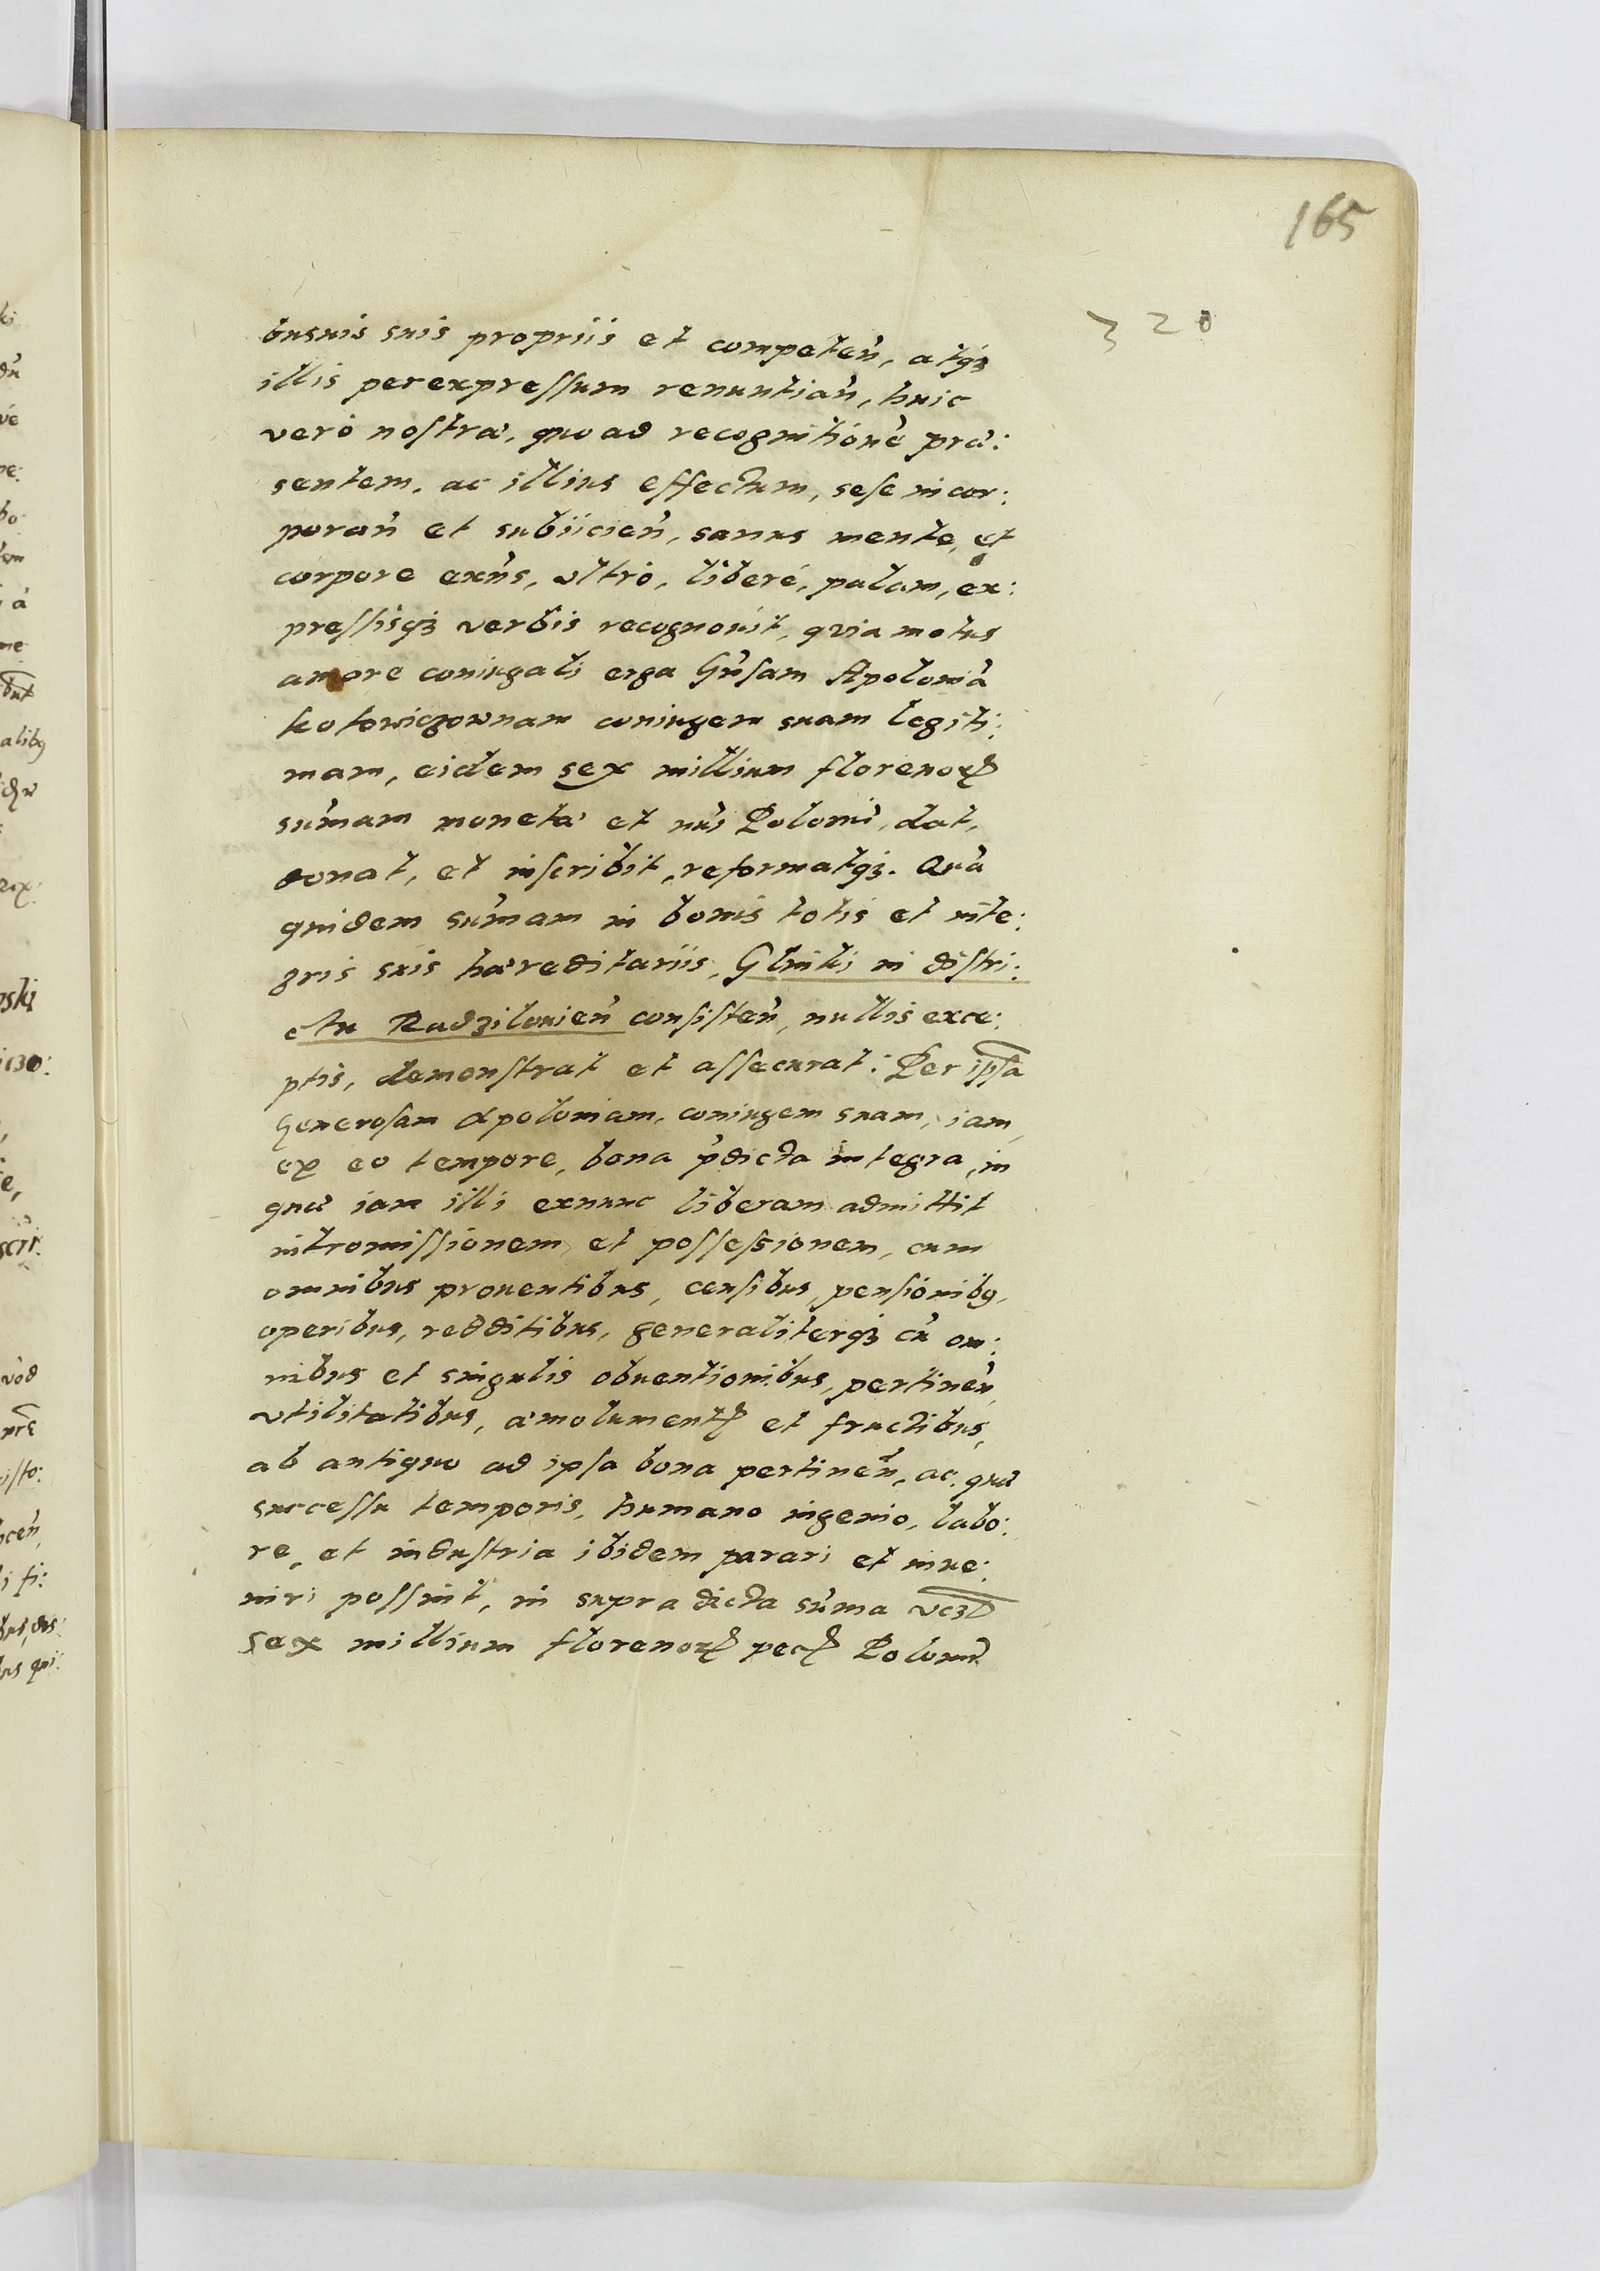 165
320
busuis suis propriis et competen̄, atq₃
illis perexpressum renuntian̄, huic
verò nostræ, quo ad recognitionē præ:
sentem, ac illius effectum, sese incor:
poran̄ et subiicien̄, sanus mente, et
corpore exn̄s, vltrò, liberé, palam, ex:
pressisq₃ verbis recognouit, qvia motus
amore coniugali erga Gn̄sam Apoloniā
Kotowiczownam coniugem suam legiti:
mam, eidem sex millium florenoꝝ
sum̄am monetæ et nr̄i Polonī, dat,
donat, et inscribit, reformatq₃. Quā
quidem sum̄am in bonis totis et inte:
gris suis hæreditariis, Glinki in distri:
ctu Radzilouien̄ consisten̄, nullis exce:
ptis, demonstrat et assecurat: Per ipsā
Generosam Apoloniam, coniugem suam, iam,
ex eo tempore, bona p̄dicta integra, in
quæ iam illi exnunc liberam admittit
intromissionem et possessionem, cum
omnibus prouentibus, censibus, pensionibꝯ,
operibus, redditibus, generaliterq₃ cū om:
nibus et singulis obuentionibus, pertinen̄,
vtilitatibus, æmolumentꝭ et fructibus,
ab antiquo ad ipsa bona pertinen̄, ac quæ
successu temporis, humano ingenio, labo:
re, et industria ibidem parari et inue:
niri possint, in supra dicta sum̄a vcꝫt
sex millium florenoꝝ pecꝭ Polonī